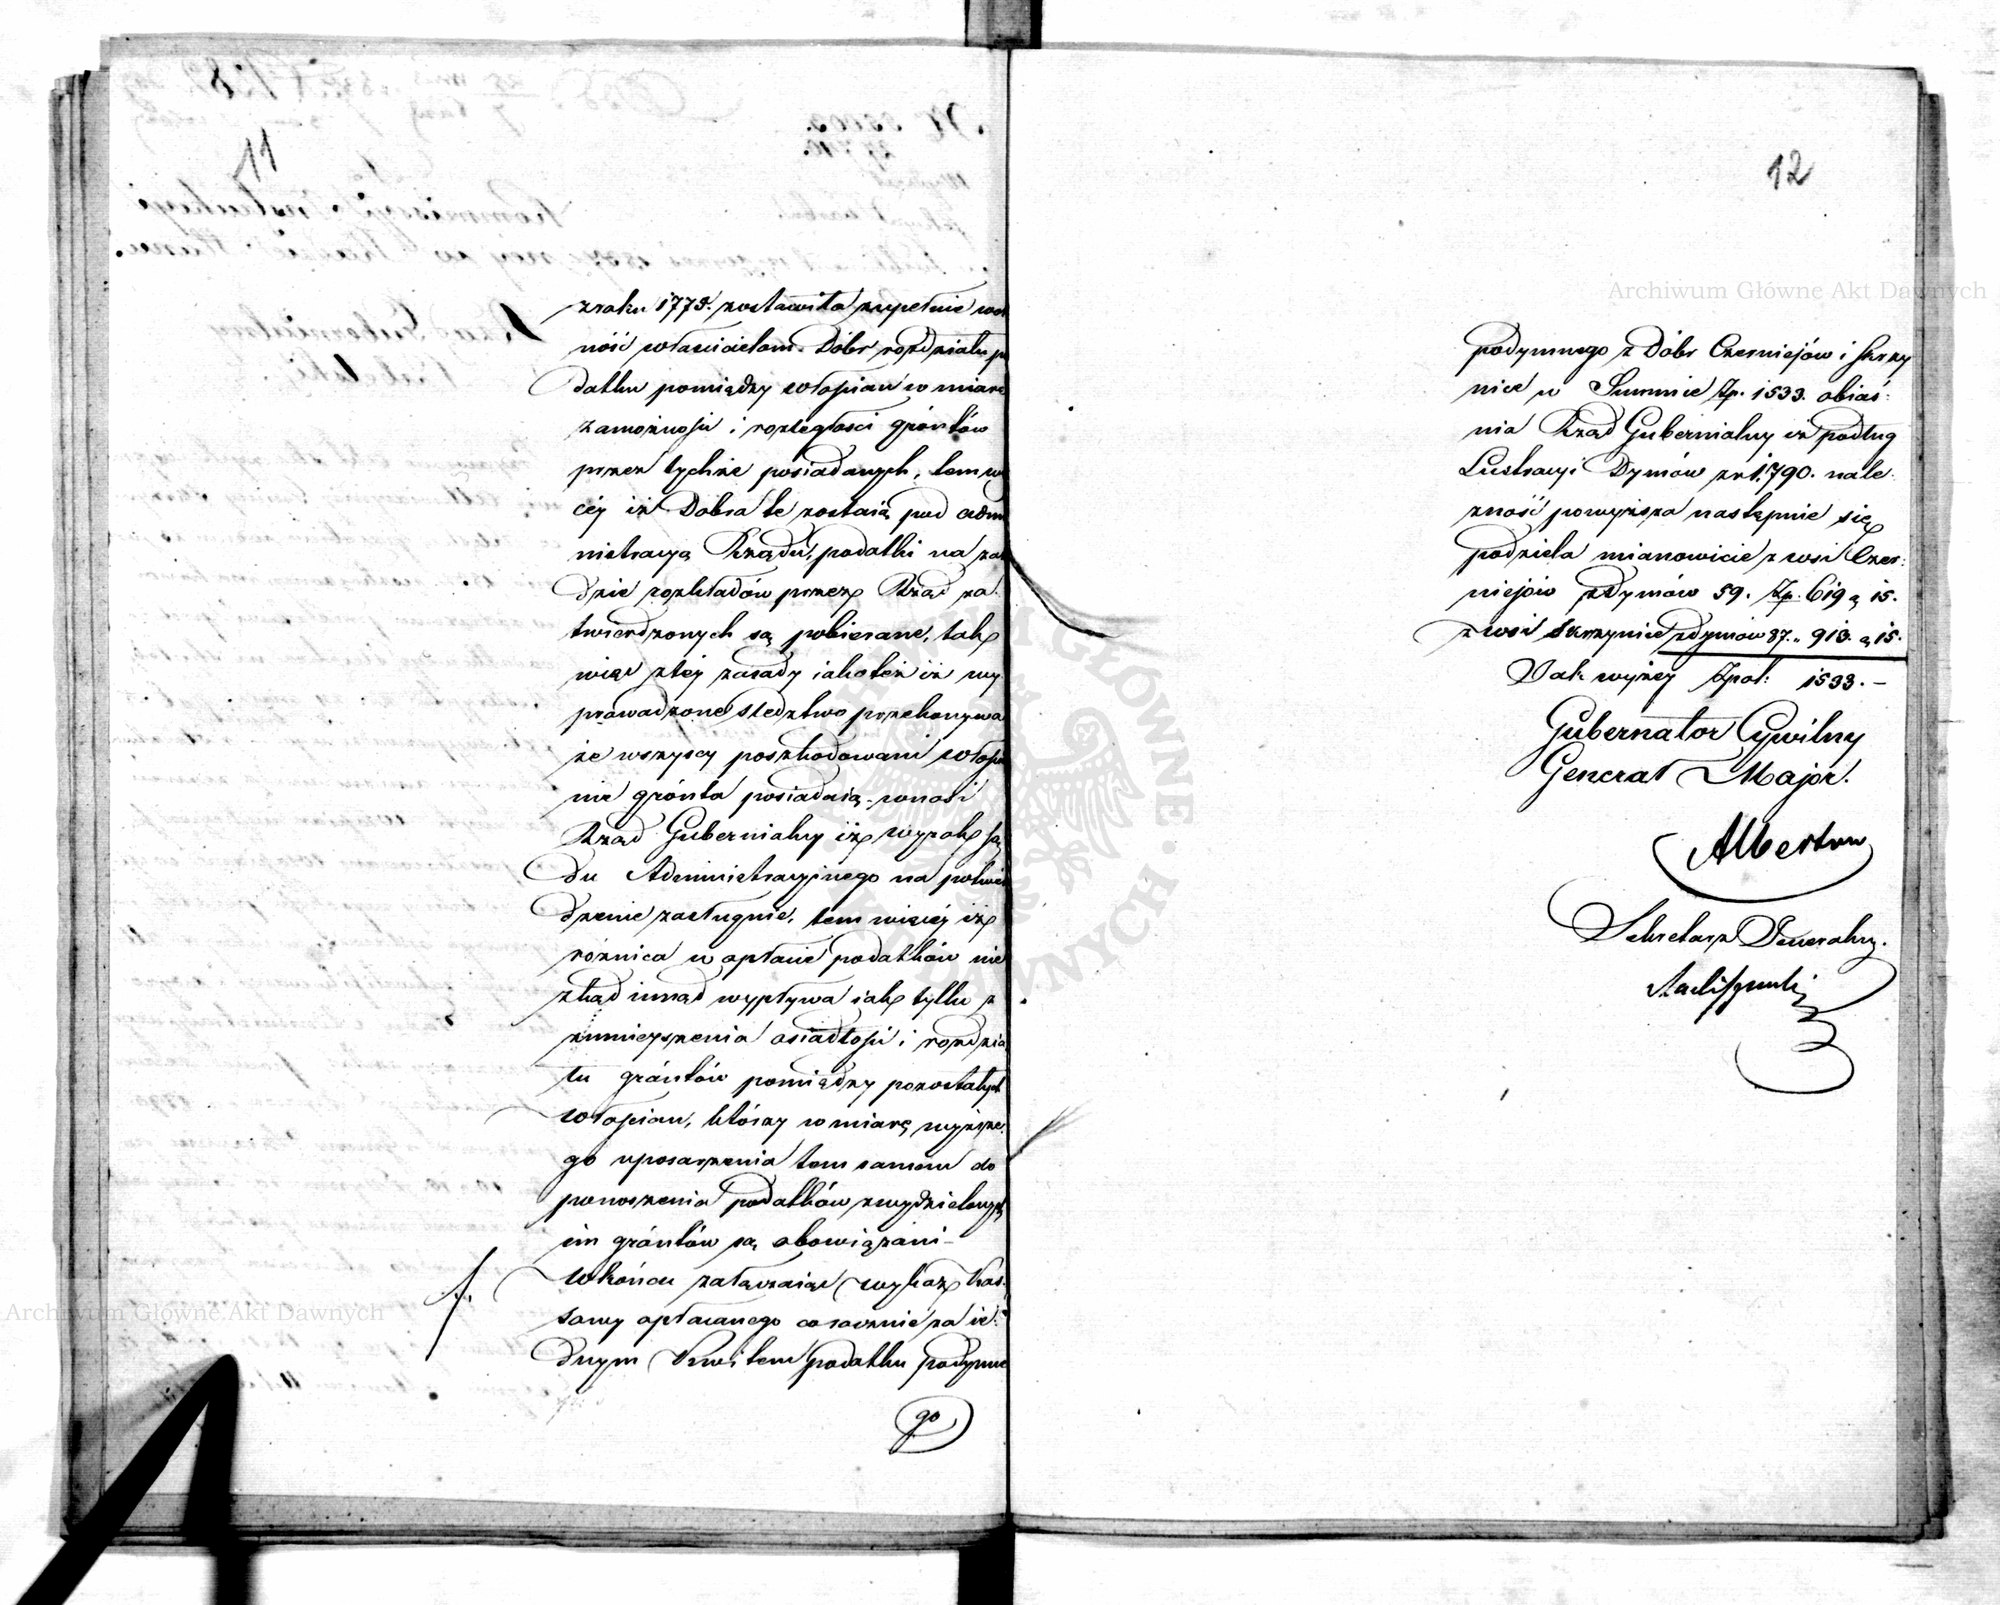 11
z roku 1775. zostawiła zupełnie wol
ność właścicielom Dóbr rozdziału po
datku pomiędzy włościan w miarę
zamożności i rozległości gróntów
przez tychże posiadanych, tem wię
céy iż Dobra te zostaią pod admi
nistracyą Rządu, podatki na za
dzie rozkładów przez Rząd za
twierdzonych są pobierane, tak
więc z téy zasady iakoteż iż wy
prowadzone śledztwo przekonywa
że wszyscy poszkodowani włościa
nie grónta posiadaią, wnosi
Rząd Gubernialny iż wyrok Są
du Administracyjnego na potwier
dzenie zasługuie, tem więcéy iż
różnica w opłacie podatków nie
zkąd innąd wypływa iak tylko z
zmnieyszenia osiadłości i rozdzia
łu gróntów pomiędzy pozostałych
włościan, którzy w miarę wyższe
go uposażenia tem samem do
ponoszenia podatków z wydzielonych
im gróntów są obowiązani -
W końcu załączaiąc wykaz Kas
sowy opłacanego corocznie za ie
dnym Kwitem podatku podymne
go
12
podymnego z Dóbr Czerniejów i Skrzy
nice w Summie Zp. 1533. obiaś:
nia Rząd Gubernialny iż podług
Lustracyi Dymów z r. 1790. nale
żność powyższa następnie się
podziela mianowicie z wsi Czer:
niejów z dymów 59. Zp. 619 g 15.
z wsi Skrzynice z dymów 87. „ 913. g 15.
Jak wyżey Zpol: 1533. -
Gubernator Cywilny
Generał Major.
Albertow
Sekretarz Jeneralny.
Archiwum Główne Akt Dawnych
Archiwum Główne Akt Dawnych